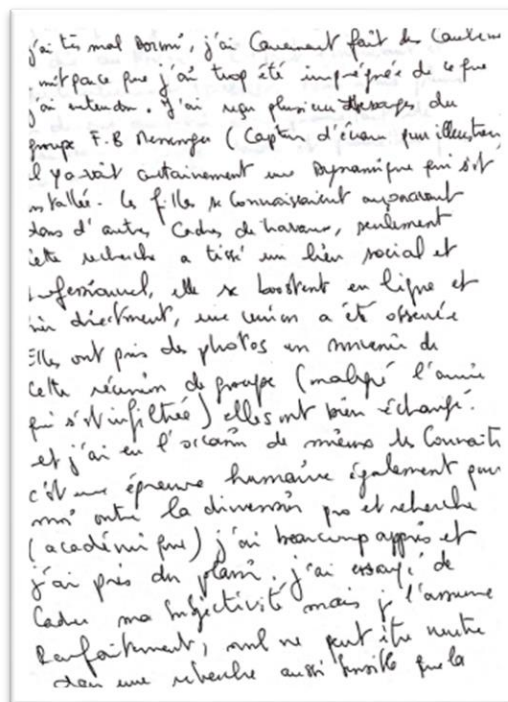 j'ai très mal Dormi, j'ai Carrément fait des Cauchem
nuit parce que j'ai trop été imprégnée de ce que
j'ai entendu. J'ai reçu plusieurs Messages du
groupe F.B Messenger (Capture d'écran pour illustration
Il y avait certainement une Dynamique qui s'est
installée. les filles se Connaissaient auparavant
dans d'autres Cadres de travaux, seulement
cette recherche a tissé un lien social et
professionnel, elle se boostent en ligne et
directement, une union a été observée
Elles ont pris des photos en souvenir de
cette réunion de groupe (malgré l'amie
qui s'est infiltrée) elles ont bien échangé.
et j'ai eu l'occasion de mieux les Connaitr
c'est une épreuve humaine également pour
moi outre la dimension pro et recherche
(académique) j'ai beaucoup appris et
j'ai pris du plaisir. j'ai essayé de
Cadrer ma Subjectivité mais je l'assume
Parfaitement, nul ne peut être neutre
dans une recherche aussi sensible que la